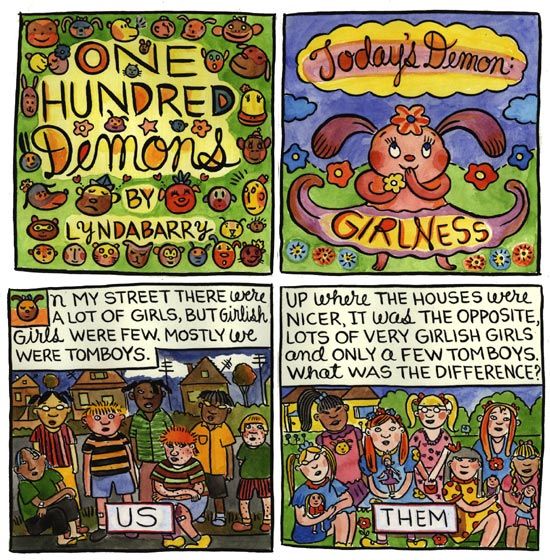 ONE
HUNDRED
Demons
BY
LYNDABARRY
Today's Demon:
GIRLNESS
On MY STREET THERE were
A LOT OF GIRLS, BUT Girlish
Girls WERE FEW. MOSTLY we
WERE TOMBOYS.
US
UP where THE HOUSES were
NICER, IT was THE OPPOSITE,
LOTS OF VERY GIRLISH GIRLS
and ONLY A FEW TOMBOYS.
What WAS THE DIFFERENCE?
THEM